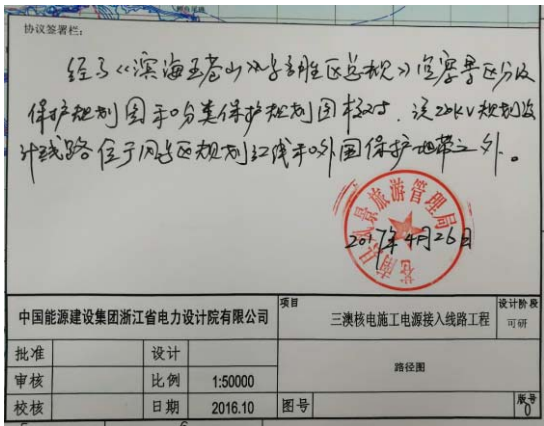 协议签署栏:
经与《滨海玉苍山风景名胜区总规》渔寮景区分级
保护规划图和分类保护规划图核对,该220kV规划设
计线路位于风景区规划红线和外围保护地带之外。
苍南县风景旅游管理局
2017年4月26日
中国能源建设集团浙江省电力设计院有限公司
项目
三澳核电施工电源接入线路工程
设计阶段
可研
批准
设计
路径图
审核
比例
1:50000
校核
日期
2016.10
图号
版号
0